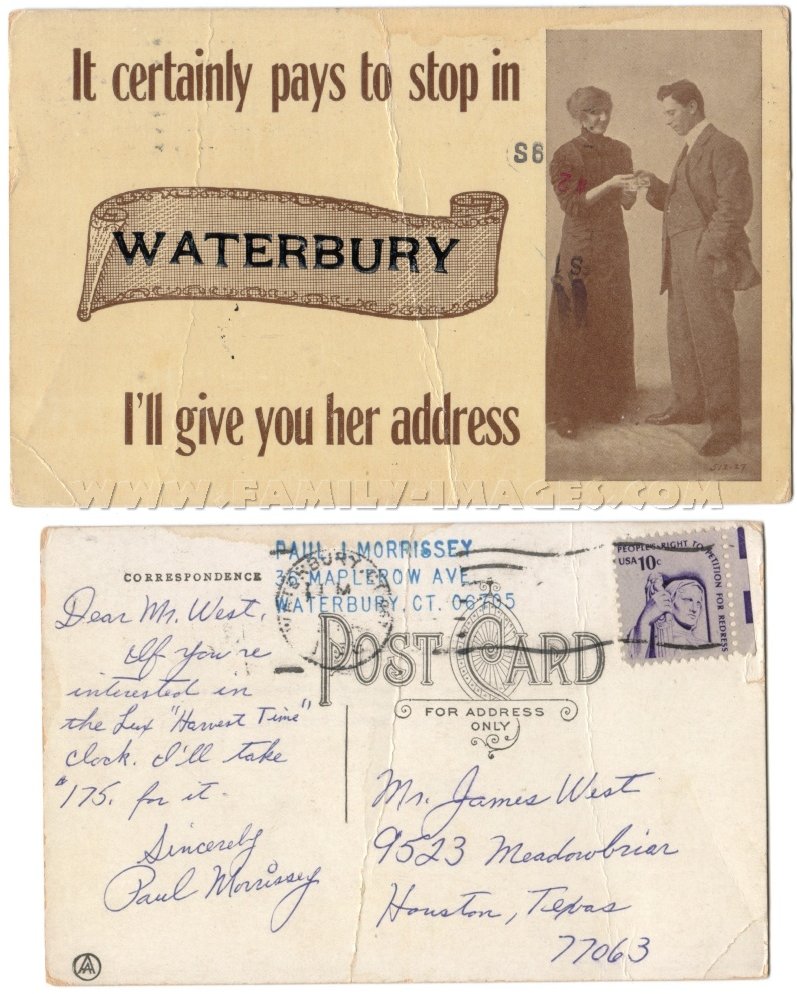 It certainly pays to stop in
S6
WATERBURY
I'll give you her address
512-27
WWW.FAMILY-IMAGES.COM
PAUL J MORRISSEY
36 MAPLEROW AVE.
WATERBURY, CT. 06705
CORRESPONDENCE
POST CARD
FOR ADDRESS
ONLY
PEOPLE'S RIGHT TO PETITION FOR REDRESS
USA 10c
Dear Mr. West,
If you're
interested in
the Lux "Harvest Time"
clock. I'll take
$175. for it.
Sincerely
Paul Morrissey
Mr. James West
9523 Meadowbriar
Houston, Texas
77063